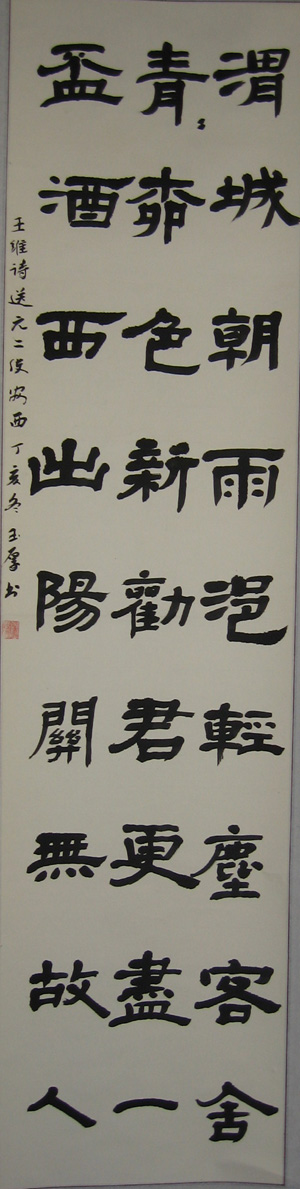 渭城朝雨浥輕塵客舍
青〻桺色新勸君更盡一
盃酒西出陽關無故人
王維詩送元二使安西丁亥冬玉厚书